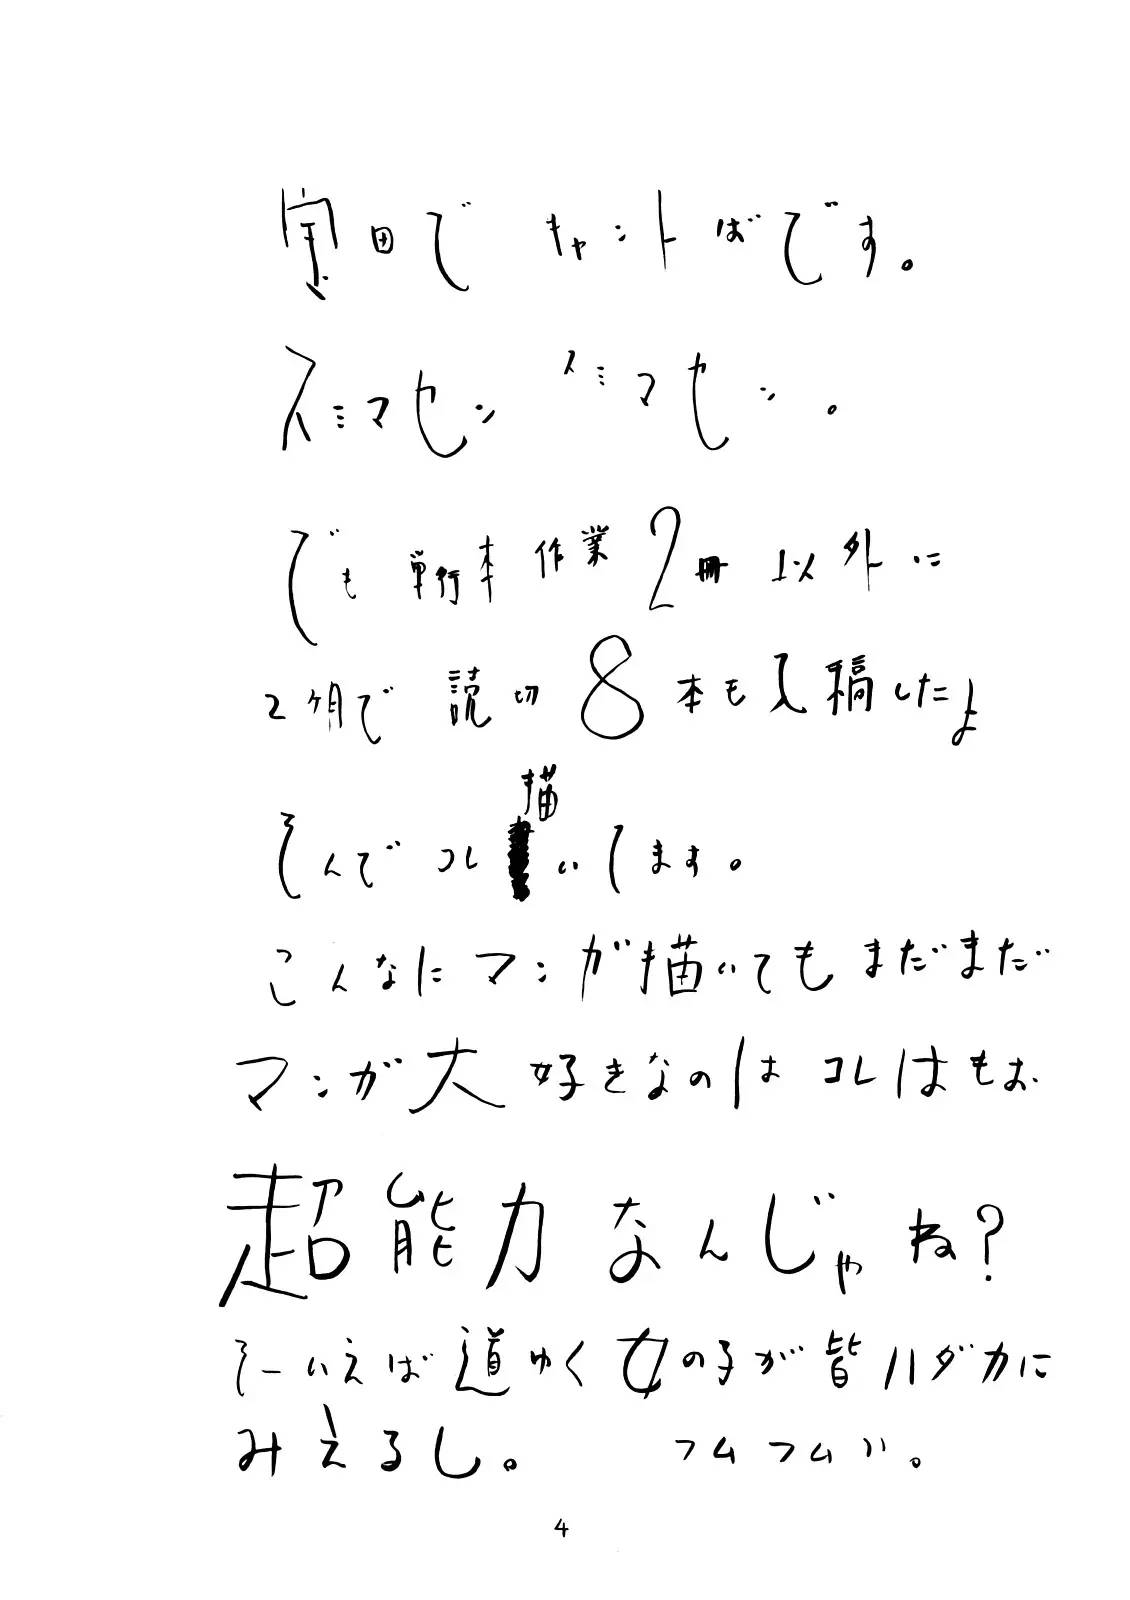 宝田で キャントばです。
スミマセン スミマセン。
でも 単行本 作業 2冊 以外に
2ヶ月で 読切 8本も入稿したよ
そんで コレ描いてます。
こんなに マンガ描いても まだまだ
マンガ大好きなのは コレはもお
超能力 なんじゃね?
そーいえば 道ゆく 女の子が皆ハダカに
みえるし。 フムフム〃。
4